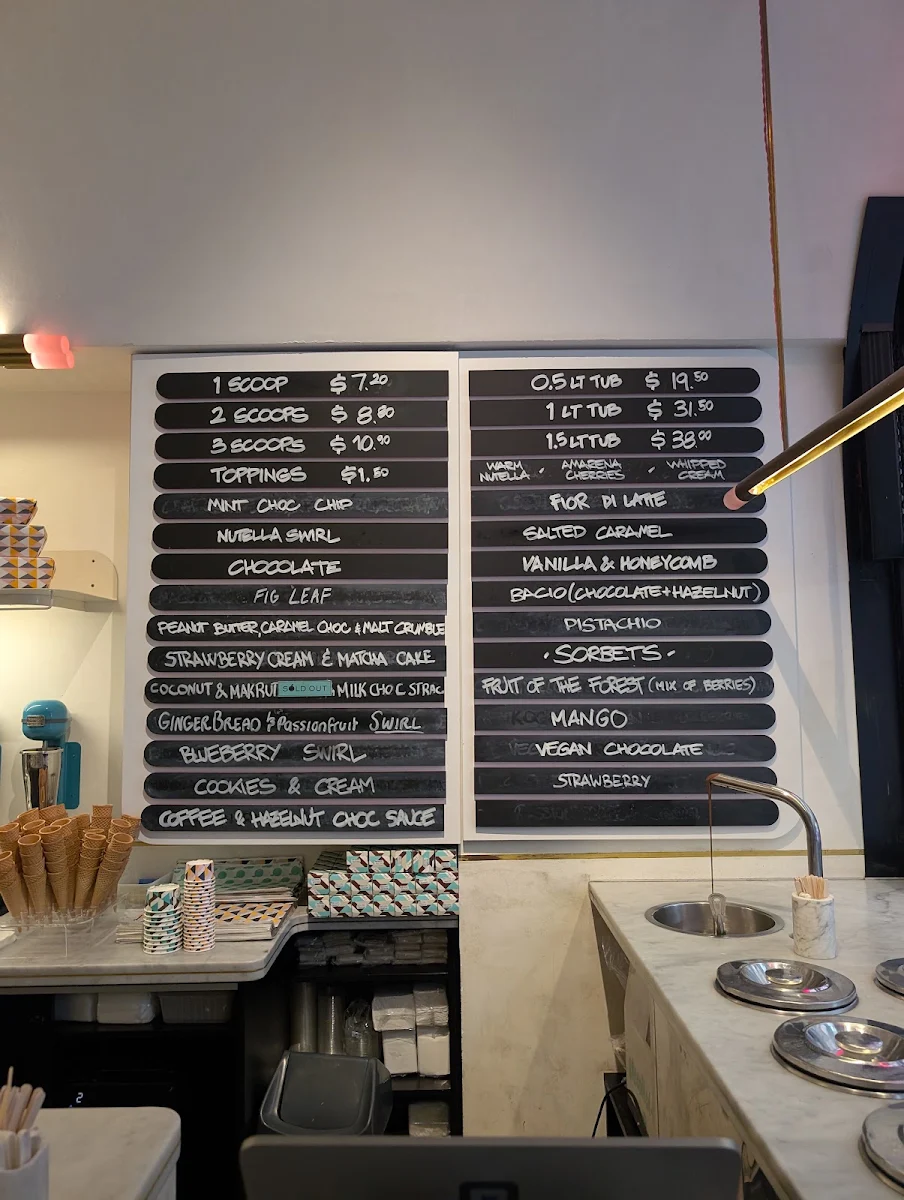 1 SCOOP $7.20
2 SCOOPS $8.80
3 SCOOPS $10.90
TOPPINGS $1.50
MINT CHOC CHIP
NUTELLA SWIRL
CHOCOLATE
FIG LEAF
PEANUT BUTTER, CARAMEL CHOC & MALT CRUMBLE
STRAWBERRY CREAM & MATCHA CAKE
COCONUT & MAKRUT SOLD OUT MILK CHOC STRAC
GINGERBREAD & Passionfruit SWIRL
BLUEBERRY SWIRL
COOKIES & CREAM
COFFEE & HAZELNUT CHOC SAUCE
0.5 LT TUB $19.50
1 LT TUB $31.50
1.5 LT TUB $38.00
WARM NUTELLA · AMARENA CHERRIES · WHIPPED CREAM
FIOR DI LATTE
SALTED CARAMEL
VANILLA & HONEYCOMB
BACIO (CHOCOLATE + HAZELNUT)
PISTACHIO
· SORBETS ·
FRUIT OF THE FOREST (MIX OF BERRIES)
MANGO
VEGAN CHOCOLATE
STRAWBERRY
2